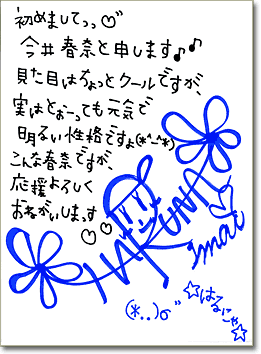 初めましてっっ♡
今井春奈と申します♪♪
見た目はちょっとクールですが、
実はとぉーっても元気で
明るい性格ですょ(*^_^*)
こんな春奈ですが、
応援よろしく
おねがいします♡♡
HARUNA
imai
☆はるにゃ☆
(*..)σ"